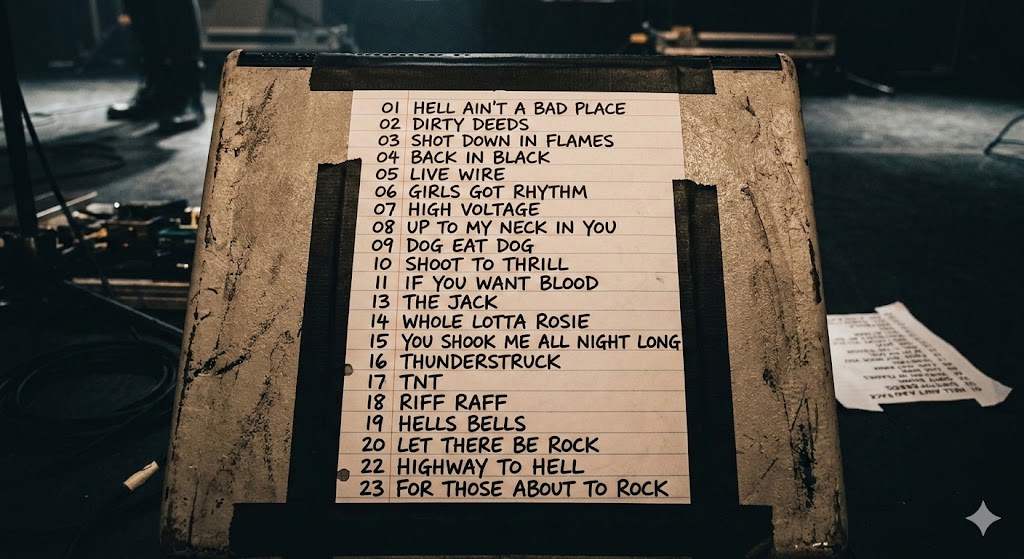 01 HELL AIN'T A BAD PLACE
02 DIRTY DEEDS
03 SHOT DOWN IN FLAMES
04 BACK IN BLACK
05 LIVE WIRE
06 GIRLS GOT RHYTHM
07 HIGH VOLTAGE
08 UP TO MY NECK IN YOU
09 DOG EAT DOG
10 SHOOT TO THRILL
11 IF YOU WANT BLOOD
13 THE JACK
14 WHOLE LOTTA ROSIE
15 YOU SHOOK ME ALL NIGHT LONG
16 THUNDERSTRUCK
17 TNT
18 RIFF RAFF
19 HELLS BELLS
20 LET THERE BE ROCK
22 HIGHWAY TO HELL
23 FOR THOSE ABOUT TO ROCK